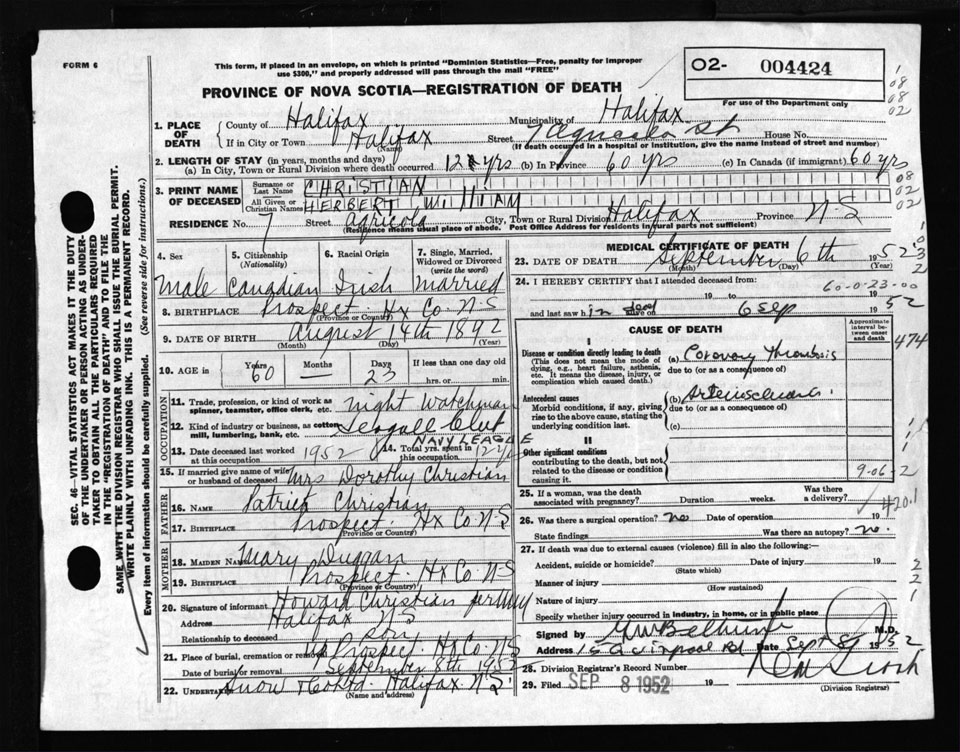 FORM 6
This form, if placed in an envelope, on which is printed "Dominion Statistics—Free, penalty for improper
use $300," and properly addressed will pass through the mail "FREE"
O2- 004424
For use of the Department only
PROVINCE OF NOVA SCOTIA—REGISTRATION OF DEATH
08
08
02
1. PLACE OF DEATH
County of Halifax Municipality of Halifax
If in City or Town Halifax Street 7 Agricola St House No.
(Name) (If death occurred in a hospital or institution, give the name instead of street and number)
2. LENGTH OF STAY (in years, months and days)
(a) In City, Town or Rural Division where death occurred 12 yrs (b) In Province 60 yrs (c) In Canada (if immigrant) 60 yrs
3. PRINT NAME OF DECEASED
Surname or Last Name CHRISTIAN
All Given or Christian Names HERBERT William
08
02
02
RESIDENCE No. 7 Street agricola City, Town or Rural Division Halifax Province N-S
(Residence means usual place of abode. Post Office Address for residents in rural parts not sufficient)
4. Sex Male
5. Citizenship (Nationality) Canadian
6. Racial Origin Irish
7. Single, Married, Widowed or Divorced (write the word) Married
8. BIRTHPLACE Prospect. Hx Co N-S
(Province or Country)
9. DATE OF BIRTH August 14th 1892
(Month) (Day) (Year)
10. AGE in Years 60 Months Days 23 If less than one day old hrs. or min.
OCCUPATION
11. Trade, profession, or kind of work as spinner, teamster, office clerk, etc. night Watchman
12. Kind of industry or business, as cotton mill, lumbering, bank, etc. Seagull Club
NAVY LEAGUE
13. Date deceased last worked at this occupation 1952
14. Total yrs. spent in this occupation 12 yrs
15. If married give name of wife or husband of deceased Mrs Dorothy Christian
FATHER
16. Name Patrick Christian
17. Birthplace Prospect. Hx Co N-S
(Province or Country)
MOTHER
18. Maiden Name Mary Duggan
19. Birthplace Prospect. Hx Co N-S
(Province or Country)
20. Signature of informant Howard Christian per
Address Halifax N-S
Relationship to deceased son
21. Place of burial, cremation or removal Prospect. Hx Co. N S
Date of burial or removal September 8th 1952
22. Undertaker Snow & Co Ltd. Halifax N.S.
(Name and address)
MEDICAL CERTIFICATE OF DEATH
23. DATE OF DEATH September 6th 1952
(Month) (Day) (Year)
24. I HEREBY CERTIFY that I attended deceased from:
60-0-23-00
19 to 19
and last saw h im dead alive on 6 Sep 1952
CAUSE OF DEATH
Approximate interval between onset and death
474
I
Disease or condition directly leading to death (a) Coronary Thrombosis
(This does not mean the mode of dying, e.g., heart failure, asthenia, etc. It means the disease, injury, or complication which caused death.)
due to (or as a consequence of)
Antecedent causes (b) Arteriosclerosis
Morbid conditions, if any, giving rise to the above cause, stating the underlying condition last.
due to (or as a consequence of)
(c)
II
Other significant conditions
contributing to the death, but not related to the disease or condition causing it.
9-06-2
25. If a woman, was the death associated with pregnancy? Duration weeks. Was there a delivery?
420.1
26. Was there a surgical operation? no Date of operation 19
State findings Was there an autopsy? no.
27. If death was due to external causes (violence) fill in also the following:—
Accident, suicide or homicide? Date of injury 19
(State which)
Manner of injury
(How sustained)
Nature of injury
Specify whether injury occurred in industry, in home, or in public place
Signed by M.D.
Address Quinpool Rd Date Sept 8 1952
28. Division Registrar's Record Number
29. Filed SEP 8 1952 19
(Division Registrar)
SEC. 46—VITAL STATISTICS ACT MAKES IT THE DUTY
OF THE UNDERTAKER OR PERSON ACTING AS UNDER-
TAKER TO OBTAIN ALL THE PARTICULARS REQUIRED
IN THE "REGISTRATION OF DEATH" AND TO FILE THE
SAME WITH THE DIVISION REGISTRAR WHO SHALL ISSUE THE BURIAL PERMIT.
WRITE PLAINLY WITH UNFADING INK. THIS IS A PERMANENT RECORD.
Every item of information should be carefully supplied. (See reverse side for instructions.)